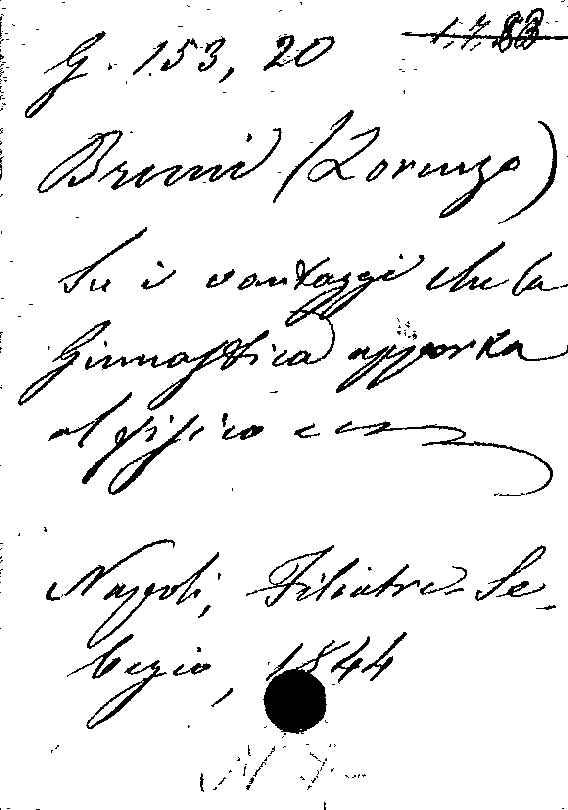 G. 153, 20
Bruni (Lorenzo)
Su i vantaggi che la
Ginnastica apporta
al fisico ecc
Napoli, Filiatre-Se-
bezio, 1844